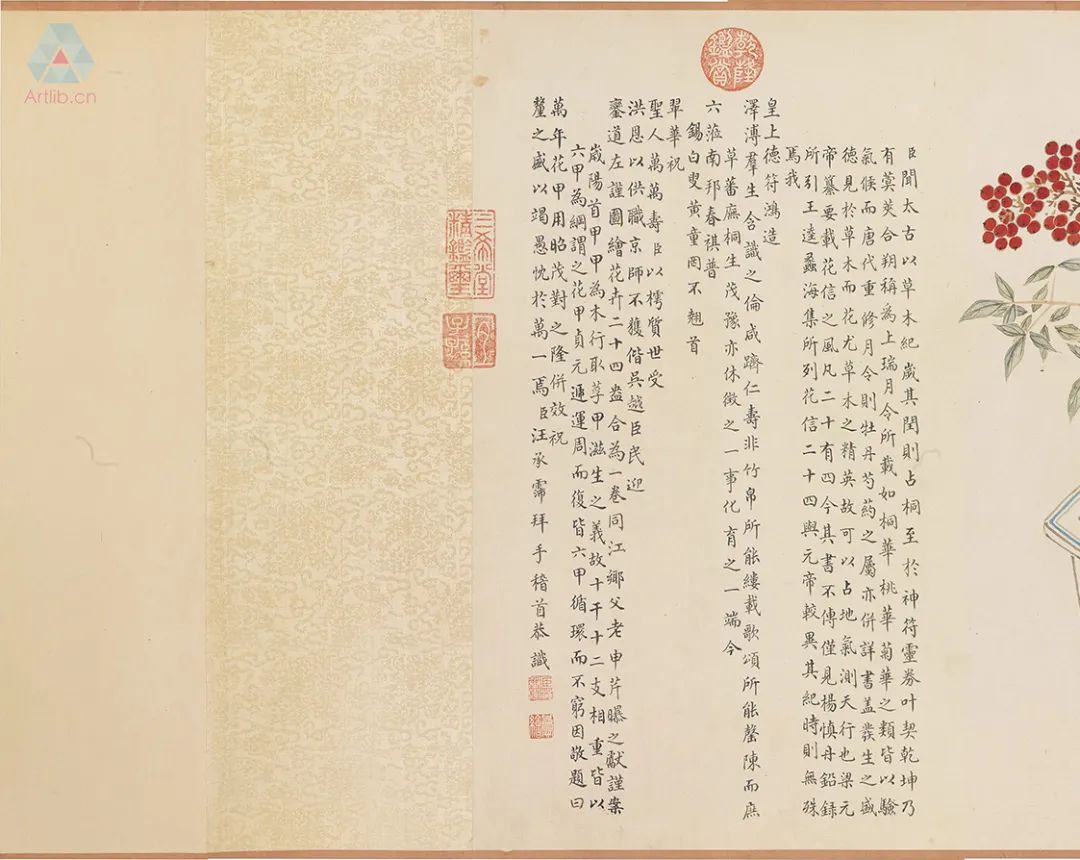 臣聞太古以草木紀歲其閏則占桐至於神符靈券叶契乾坤乃
有蓂莢合朔稱為上瑞月令所載如桐華桃華菊華之類皆以驗
氣候而唐代重修月令則牡丹芍藥之屬亦併詳書蓋發生之盛
德見於草木而花尤草木之精英故可以占地氣測天行也梁元
帝纂要載花信之風凡二十有四今其書不傳僅見楊慎丹鉛錄
所引王逵蠡海集所列花信二十四與元帝較異其紀時則無殊
焉我
皇上德符鴻造
澤溥羣生含識之倫咸躋仁壽非竹帛所能縷載歌頌所能罄陳而庶
草蕃廡桐生茂豫亦休徵之一事化育之一端今
六蒞南邦春祺普
錫白叟黃童罔不翹首
翠華祝
聖人萬萬壽臣以樗質世受
洪恩以供職京師不獲偕吳越臣民迎
鑾道左謹圖繪花卉二十四盎合為一卷同江鄉父老申芹曝之獻謹案
歲陽首甲甲為木行取莩甲滋生之義故十干十二支相重皆以
六甲為綱謂之花甲貞元遞運周而復皆六甲循環而不窮因敬題曰
萬年花甲用昭茂對之隆併效祝
釐之盛以竭愚忱於萬一焉臣汪承霈拜手稽首恭識
乾隆鑑賞
三希堂精鑑璽
宜子孫
Artlib.cn